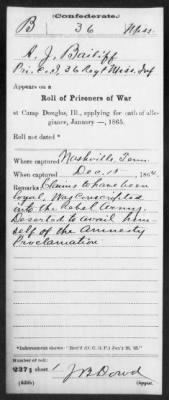 Confederate.
B 36 Miss.
A. J. Bailiff
Pri. Co. I, 36 Regt Miss. Inf
Appears on a
Roll of Prisoners of War
at Camp Douglas, Ill., applying for oath of allegiance, January —, 1865.
Roll not dated *
Where captured Nashville, Tenn.
When captured Dec. 15, 1864
Remarks Claims to have been
loyal, was conscripted
into the Rebel Army.
Deserted to avail him-
self of the Amnesty
Proclamation
Number of roll:
237; sheet 1
J B Dowd
(639b) Copyist.